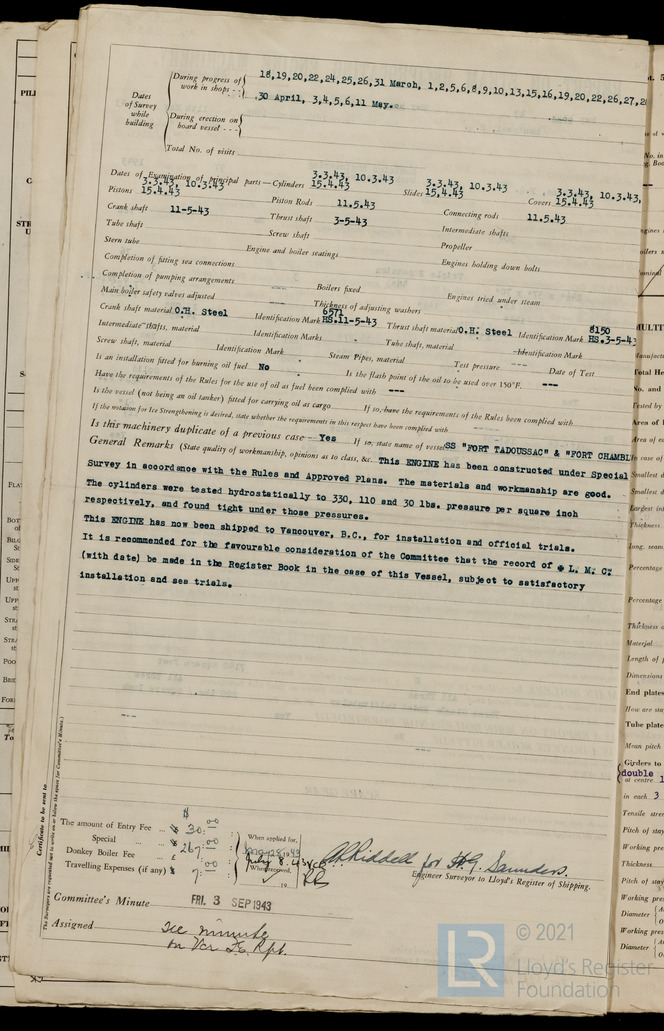 During progress of work in shops - - 18,19,20,22,24,25,26,31 March, 1,2,5,6,8,9,10,13,15,16,19,20,22,26,27,28
30 April, 3,4,5,6,11 May.
Dates of Survey while building
During erection on board vessel - - -
Total No. of visits
Dates of Examination of principal parts—Cylinders 3.3.43, 10.3.43 15.4.43 Slides 3.3.43, 10.3.43 15.4.43 Covers 3.3.43, 10.3.43, 15.4.43
Pistons 3.3.43, 10.3.43 15.4.43 Piston Rods 11.5.43 Connecting rods 11.5.43
Crank shaft 11-5-43 Thrust shaft 3-5-43 Intermediate shafts
Tube shaft Screw shaft Propeller
Stern tube Engine and boiler seatings Engines holding down bolts
Completion of fitting sea connections
Completion of pumping arrangements Boilers fixed Engines tried under steam
Main boiler safety valves adjusted Thickness of adjusting washers
Crank shaft material O.H. Steel Identification Mark 6571 HS.11-5-43 Thrust shaft material O.H. Steel Identification Mark 8150 HS.3-5-43
Intermediate shafts, material Identification Marks Tube shaft, material Identification Mark
Screw shaft, material Identification Mark Steam Pipes, material Test pressure --- Date of Test
Is an installation fitted for burning oil fuel No Is the flash point of the oil to be used over 150°F. ---
Have the requirements of the Rules for the use of oil as fuel been complied with ---
Is the vessel (not being an oil tanker) fitted for carrying oil as cargo If so, have the requirements of the Rules been complied with
If the notation for Ice Strengthening is desired, state whether the requirements in this respect have been complied with
Is this machinery duplicate of a previous case Yes If so, state name of vessel SS "FORT TADOUSSAC" & "FORT CHAMBL
General Remarks (State quality of workmanship, opinions as to class, &c. This ENGINE has been constructed under Special
Survey in accordance with the Rules and Approved Plans. The materials and workmanship are good.
The cylinders were tested hydrostatically to 330, 110 and 30 lbs. pressure per square inch
respectively, and found tight under those pressures.
This ENGINE has now been shipped to Vancouver, B.C., for installation and official trials.
It is recommended for the favourable consideration of the Committee that the record of L. M. C.
(with date) be made in the Register Book in the case of this Vessel, subject to satisfactory
installation and sea trials.
Certificate to be sent to
(The Surveyors are requested not to write on or below the space for Committee's Minute.)
$
The amount of Entry Fee ... $ 30:00
Special ... $ 267:00
Donkey Boiler Fee ... £
Travelling Expenses (if any) $ 7:00
When applied for,
July 8 43
When received,
19
for H.G. Saunders.
Engineer Surveyor to Lloyd's Register of Shipping.
Committee's Minute FRI. 3 SEP 1943
Assigned See minute
on Vcr F.E. Rpt.
© 2021
LR
Lloyd's Register
Foundation
double
at centre
in each 3
End plates
Tube plates
Girders to
Working pres
Diameter